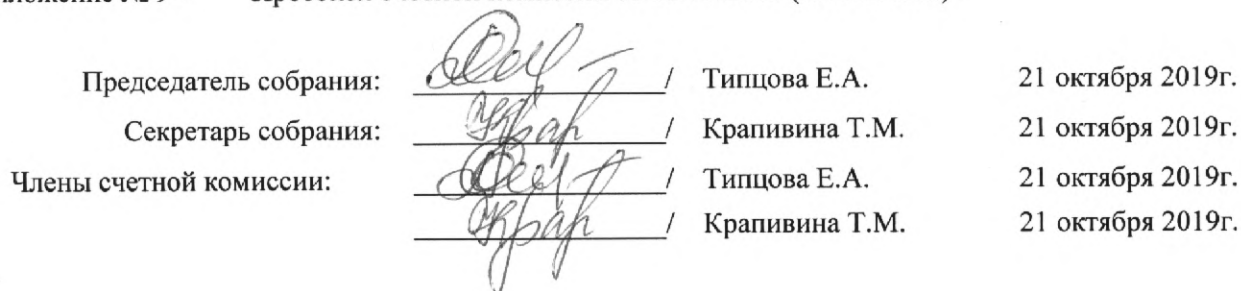 Председатель собрания: / Типцова Е.А. 21 октября 2019г.
Секретарь собрания: Крар / Крапивина Т.М. 21 октября 2019г.
Члены счетной комиссии: / Типцова Е.А. 21 октября 2019г.
Крар / Крапивина Т.М. 21 октября 2019г.